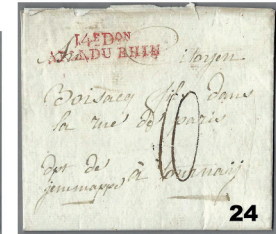 14E DON
ARM. DU RHIN
citoyen
Boisacq fils dans
la rue de paris
dpt de
jemmappe, à tournay
10
24